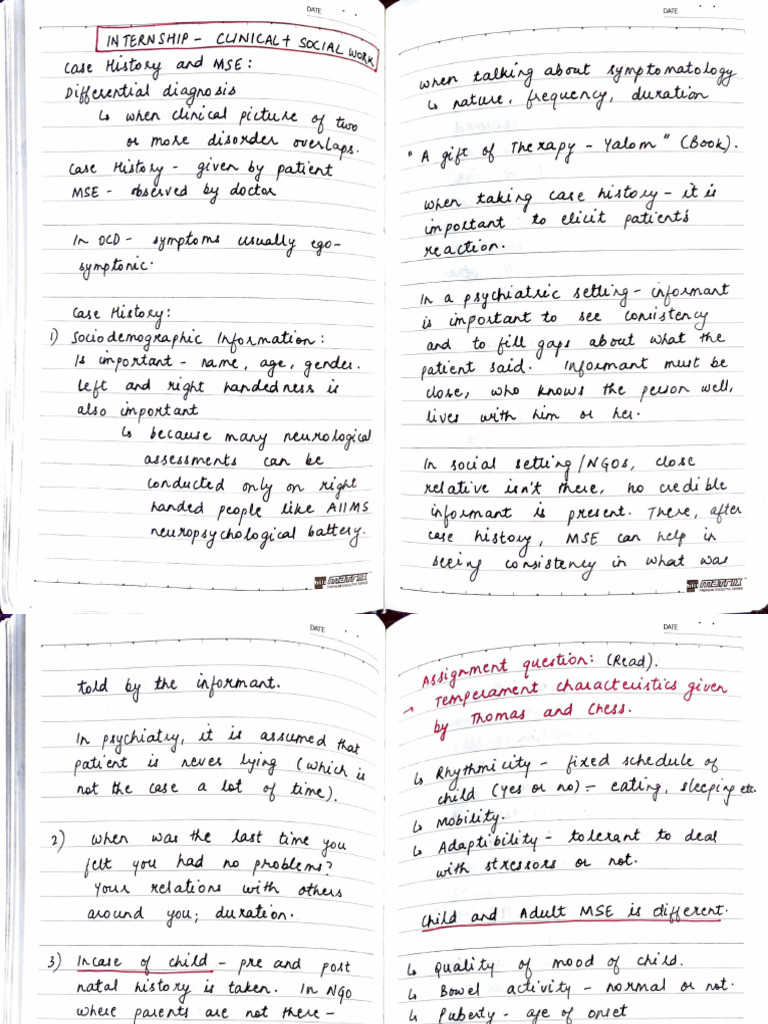 DATE
INTERNSHIP - CLINICAL + SOCIAL WORK
Case History and MSE:
Differential diagnosis
↳ when clinical picture of two
or more disorder overlaps.
Case History - given by patient
MSE - observed by doctor
In OCD - symptoms usually ego-
symptonic.
Case History:
1) Sociodemographic Information:
Is important - name, age, gender.
Left and right handedness is
also important
↳ because many neurological
assessments can be
conducted only on right
handed people like AIIMS
neuropsychological battery.
matrix
DATE
when talking about symptomatology
↳ nature, frequency, duration
"A gift of Therapy - Yalom" (Book).
When taking case history - it is
important to elicit patient's
reaction.
In a psychiatric setting - informant
is important to see consistency
and to fill gaps about what the
patient said. Informant must be
close, who knows the person well,
lives with him or her.
In social setting/NGOs, close
relative isn't there, no credible
informant is present. There, after
case history, MSE can help in
seeing consistency in what was
matrix
DATE
told by the informant.
In psychiatry, it is assumed that
patient is never lying (which is
not the case a lot of time).
2) When was the last time you
felt you had no problems?
Your relations with others
around you; duration.
3) Incase of child - pre and post
natal history is taken. In NGO
where parents are not there -
DATE
Assignment question: (Read).
→ Temperament characteristics given
by Thomas and Chess.
↳ Rhythmicity - fixed schedule of
child (yes or no) = eating, sleeping etc.
↳ Mobility.
↳ Adaptibility - tolerant to deal
with stressors or not.
Child and Adult MSE is different.
↳ Quality of mood of child.
↳ Bowel activity - normal or not.
↳ Puberty - age of onset